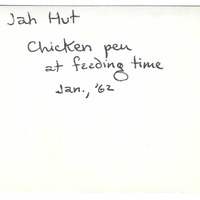 Jah Hut
Chicken pen
at feeding time
Jan., '62